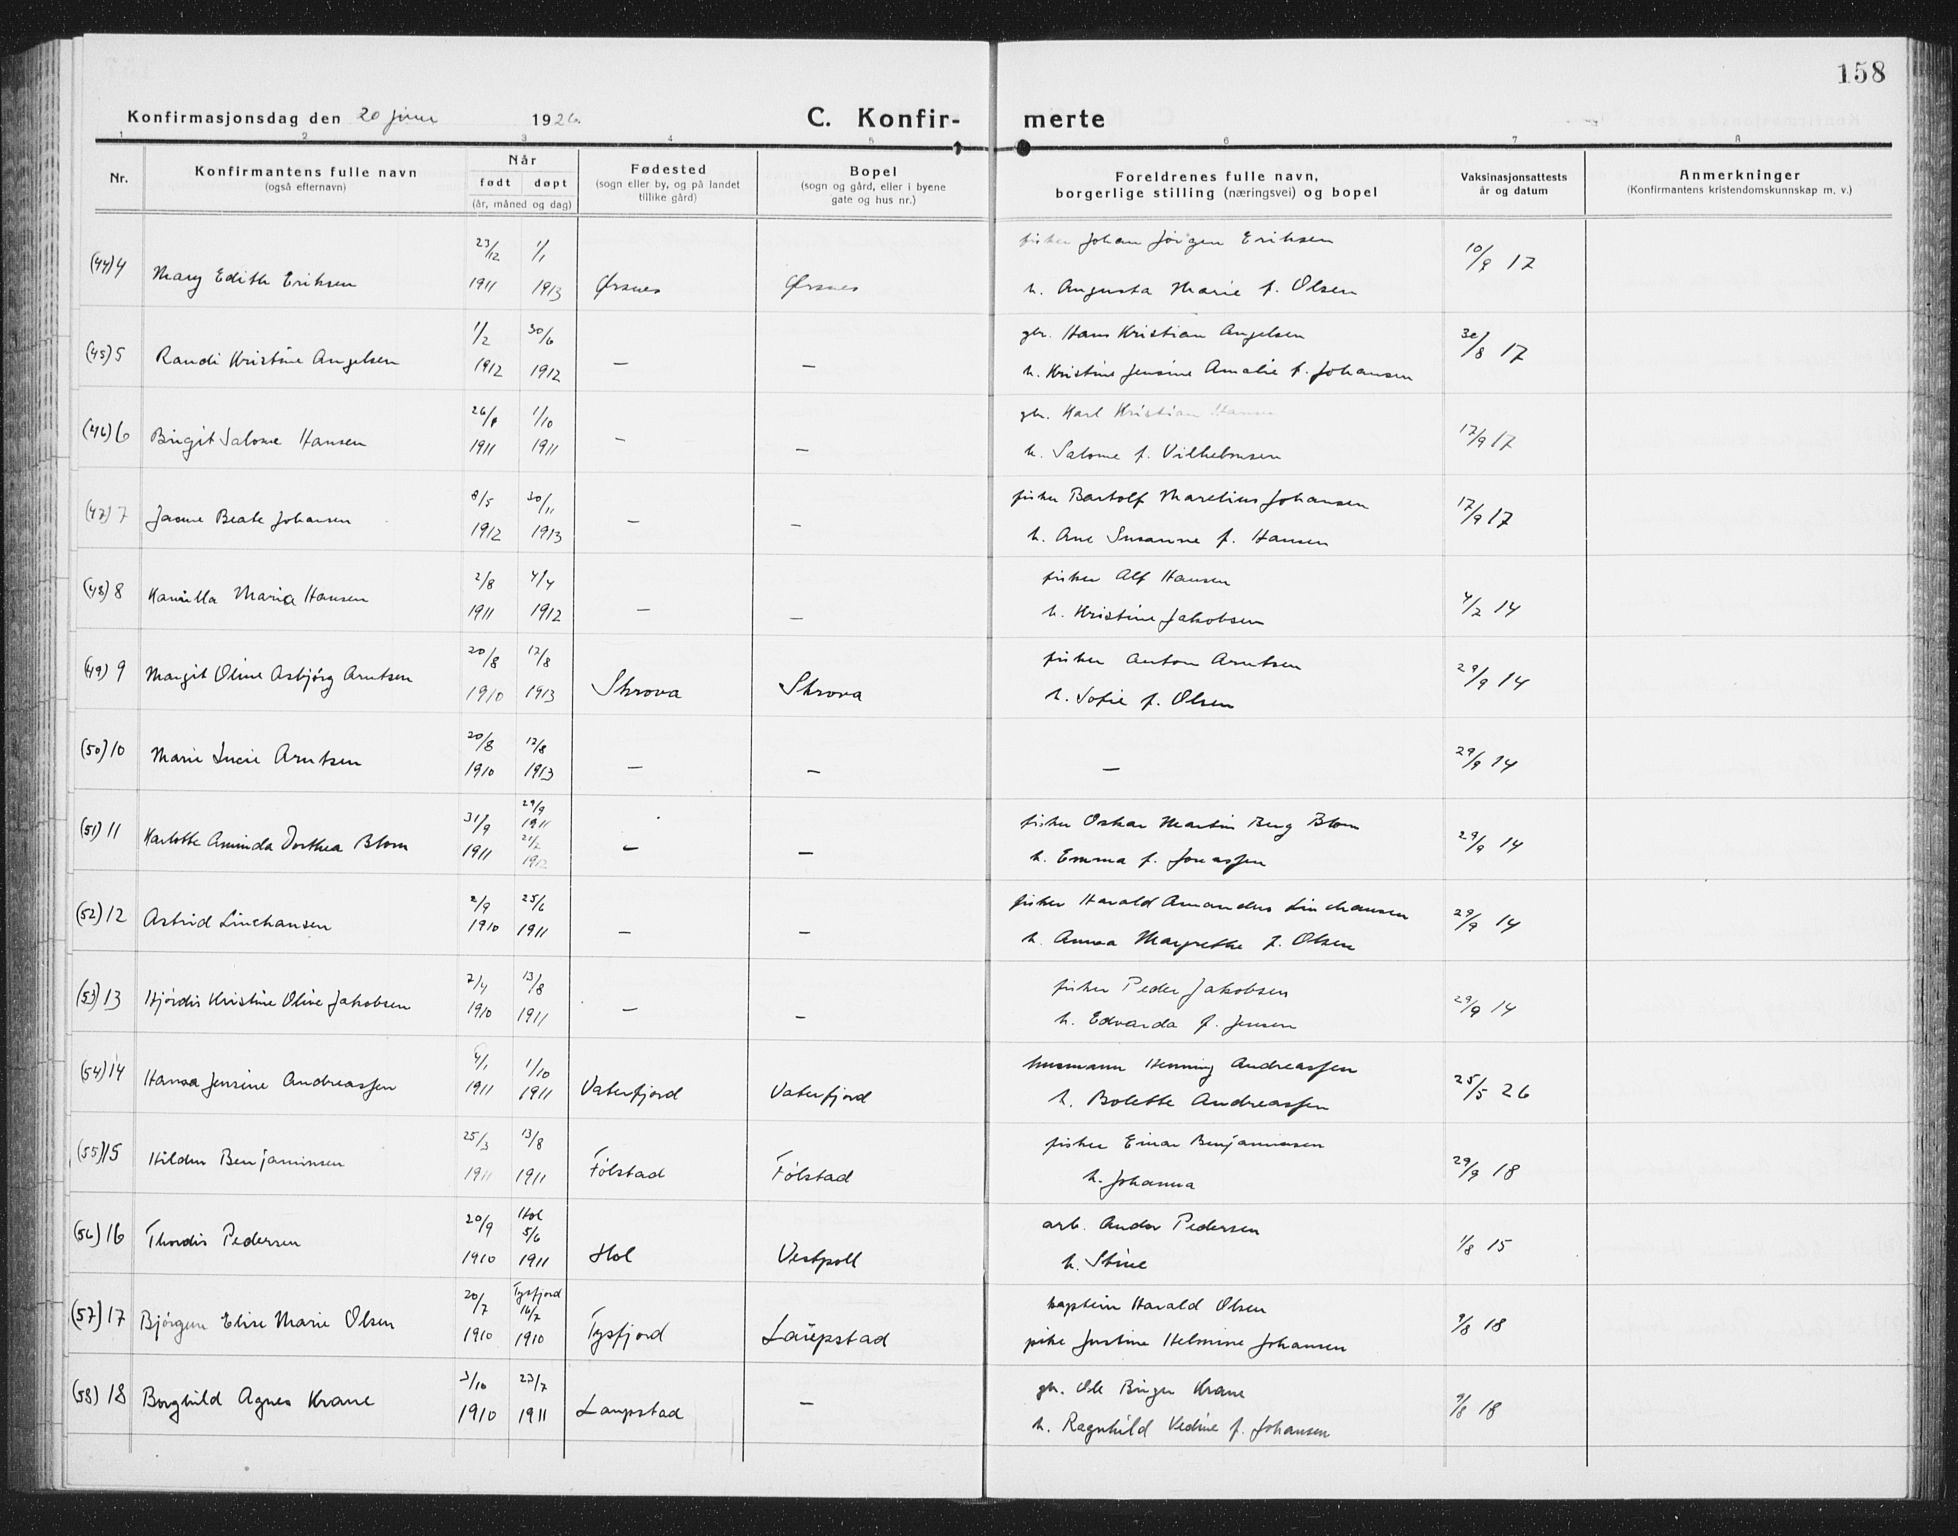 158
Konfirmasjonsdag den 20 juni 1926.
C. Konfir- merte
1 2 3 4 5 6 7 8
Nr.
Konfirmantens fulle navn
(også efternavn)
Når
født døpt
(år, måned og dag)
Fødested
(sogn eller by, og på landet
tillike gård)
Bopel
(sogn og gård, eller i byene
gate og hus nr.)
Foreldrenes fulle navn,
borgerlige stilling (næringsvei) og bopel
Vaksinasjonsattests
år og datum
Anmerkninger
(Konfirmantens kristendomskunnskap m. v.)
23/12 1/1 fisker Johan Jörgen Eriksen
(44) 4 Mary Edith Eriksen 1911 1913 Ørsnes Ørsnes h. Augusta Marie f. Olsen 10/9 17
1/2 30/6 gbr. Hans Kristian Angelsen
(45) 5 Randi Kristine Angelsen 1912 1912 — — h. Kristine Jensine Amalie f. Johansen 30/8 17
1/10 gbr. Karl Kristian Hansen
(46) 6 Birgit Salome Hansen 1911 1911 — — h. Salome f. Vilhelmsen 17/9 17
8/5 30/11 fisker Bartolf Marelius Johansen
(47) 7 Beate Johansen 1912 1913 — — h. Ane Susanne f. Hansen 17/9 17
2/8 4/4 fisker Alf Hansen
(48) 8 Kamilla Maria Hansen 1911 1912 — — h. Kristine Jakobsen 4/2 14
20/8 12/8 fisker Anton Arntsen
(49) 9 Margit Oline Asbjörg Arntsen 1910 1913 Skrova Skrova h. Sofie f. Olsen 29/9 14
20/8 12/8
(50) 10 Marie Lucie Arntsen 1910 1913 — — — 29/9 14
31/9 29/9 1911 fisker Oskar Martin Berg Blom
(51) 11 Karlotte Aminda Dorthea Blom 1911 21/2 1912 — — h. Emma f. Jonassen 29/9 14
2/9 25/6 fisker Harald Amandus Linchausen
(52) 12 Astrid Linchausen 1910 1911 — — h. Anna Margrethe f. Olsen 29/9 14
2/4 13/8 fisker Peder Jakobsen
(53) 13 Hjördis Kristine Oline Jakobsen 1910 1911 — — h. Edvarda f. Jensen 29/9 14
4/1 1/10 husmann Henning Andreassen
(54) 14 Hansa Jensine Andreassen 1911 1911 Vaterfjord Vaterfjord h. Bolette Andreassen 25/5 26
25/3 13/8 fisker Einar Benjaminsen
(55) 15 Hildur Benjaminsen 1911 1911 Fölstad Fölstad h. Johanna 29/9 18
20/9 Hol 5/6 arb. Andor Pedersen
(56) 16 Thordis Pedersen 1910 1911 Hol Vestpoll h. Stine 1/8 15
20/7 Tysfjord 16/7 kaptein Harald Olsen
(57) 17 Bjørgun Elise Marie Olsen 1910 1910 Tysfjord Laupstad pike Justine Helmine Johansen 9/8 18
3/10 23/7 gbr. Ole Birger Krane
(58) 18 Borghild Agnes Krane 1910 1911 Laupstad — h. Ragnhild Vedine f. Johansen 9/8 18